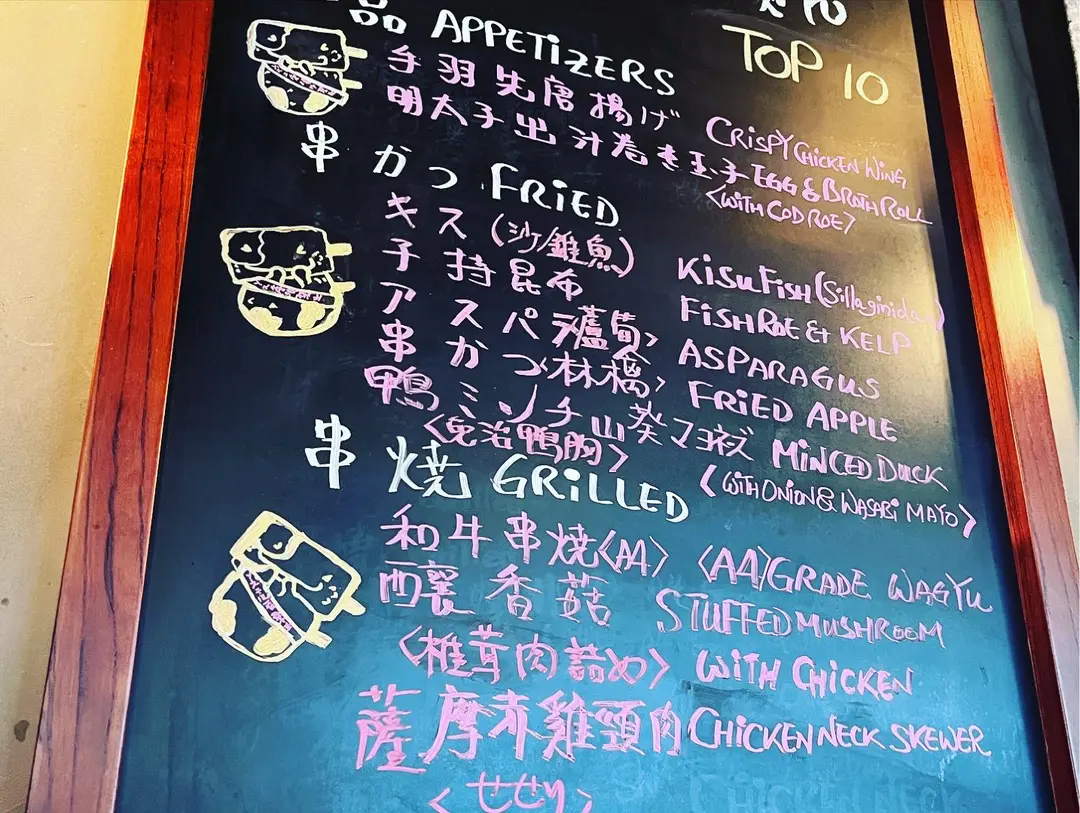 品 APPETIZERS
TOP 10
手羽先唐揚げ CRISPY CHICKEN WING
明太子出汁巻き玉子 EGG & BROTH ROLL
<WITH COD ROE>
串かつ FRIED
キス (沙錐魚) KISU FISH (Sillaginidae)
子持昆布 FISH ROE & KELP
アスパ <蘆筍> ASPARAGUS
串かつ <林檎> FRIED APPLE
鴨ミンチ山葵マヨネズ MINCED DUCK
<免治鴨胸> <WITH ONION & WASABI MAYO>
串燒 GRILLED
和牛串燒<A4> <A4> GRADE WAGYU
釀香菇 STUFFED MUSHROOM
<椎茸肉詰め> WITH CHICKEN
薩摩赤雞頸肉 CHICKEN NECK SKEWER
<せせり>